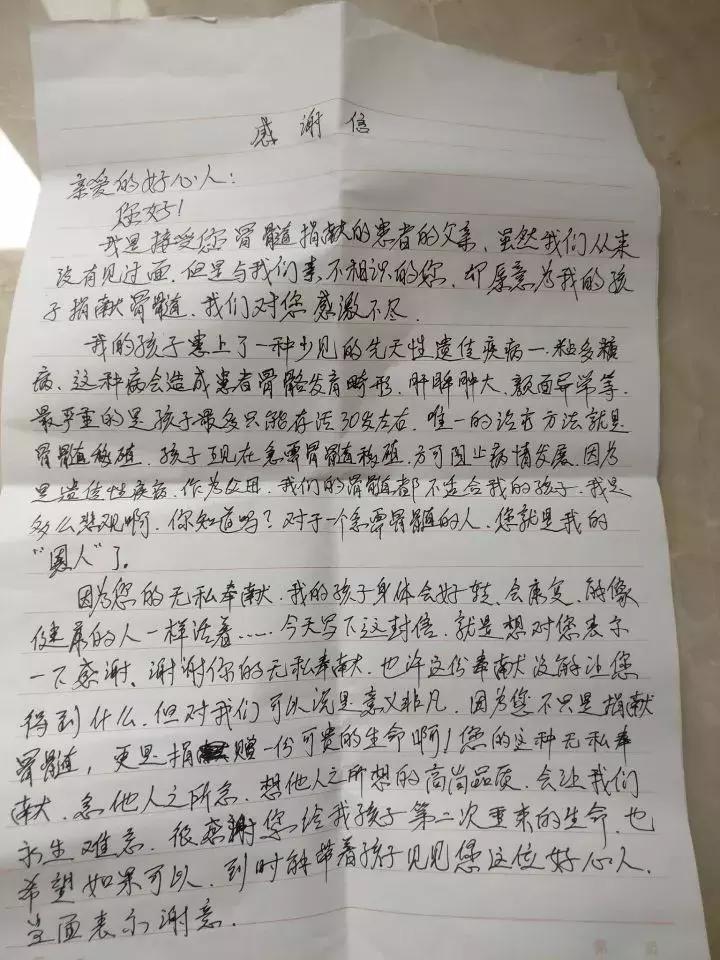 感谢信
亲爱的好心人：
您好！
我是接受您骨髓捐献的患者的父亲，虽然我们从来
没有见过面，但是与我们素不相识的您，却愿意为我的孩
子捐献骨髓，我们对您感激不尽.
我的孩子患上了一种少见的先天性遗传疾病—粘多糖
病、这种病会造成患者骨骼发育畸形，肝脾肿大，颜面异常等，
最严重的是孩子最多只能存活30岁左右，唯一的治疗方法就是
骨髓移植，孩子现在急需骨髓移植，方可阻止病情发展，因为
是遗传性疾病，作为父母，我们的骨髓都不适合我的孩子，我是
多么悲观啊，你知道吗？对于一个急需骨髓的人，您就是我的
“恩人”了.
因为您的无私奉献，我的孩子身体会好转，会康复，能像
健康的人一样活着……今天写下这封信，就是想对您表示
一下感谢、谢谢你的无私奉献，也许这份奉献没能让您
得到什么，但对我们可以说是意义非凡，因为您不只是捐献
骨髓，更是捐赠一份可贵的生命啊！您的这种无私奉
献，急他人之所急，想他人之所想的高尚品质，会让我们
永生难忘，很感谢您给我孩子第二次重来的生命，也
希望如果可以，到时能带着孩子见见您这位好心人，
当面表示谢意.